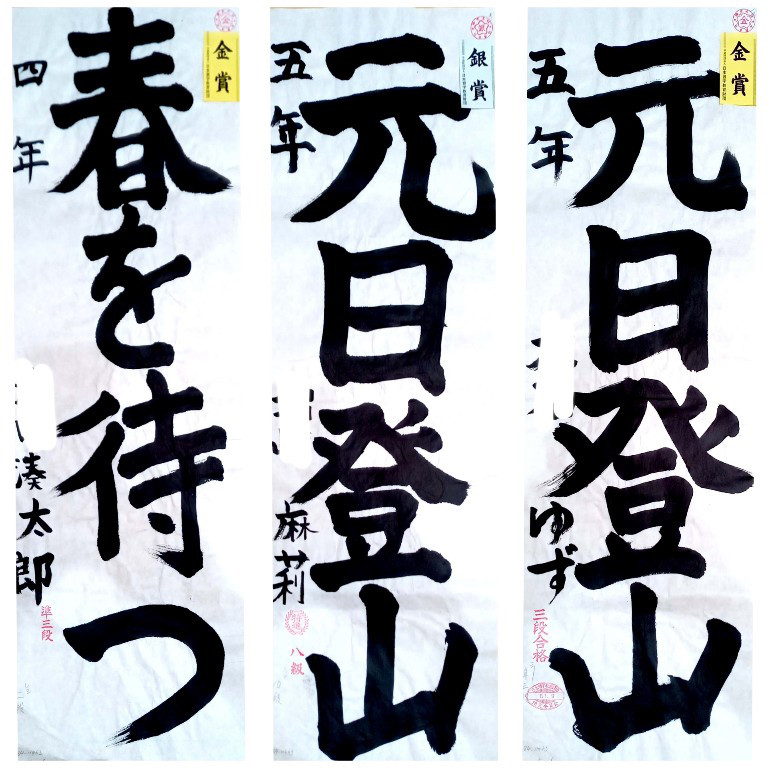 金賞
春を待つ
四年
湊太郎
準三段
銀賞
元日登山
五年
麻莉
特選
八級
金賞
元日登山
五年
ゆず
三段合格